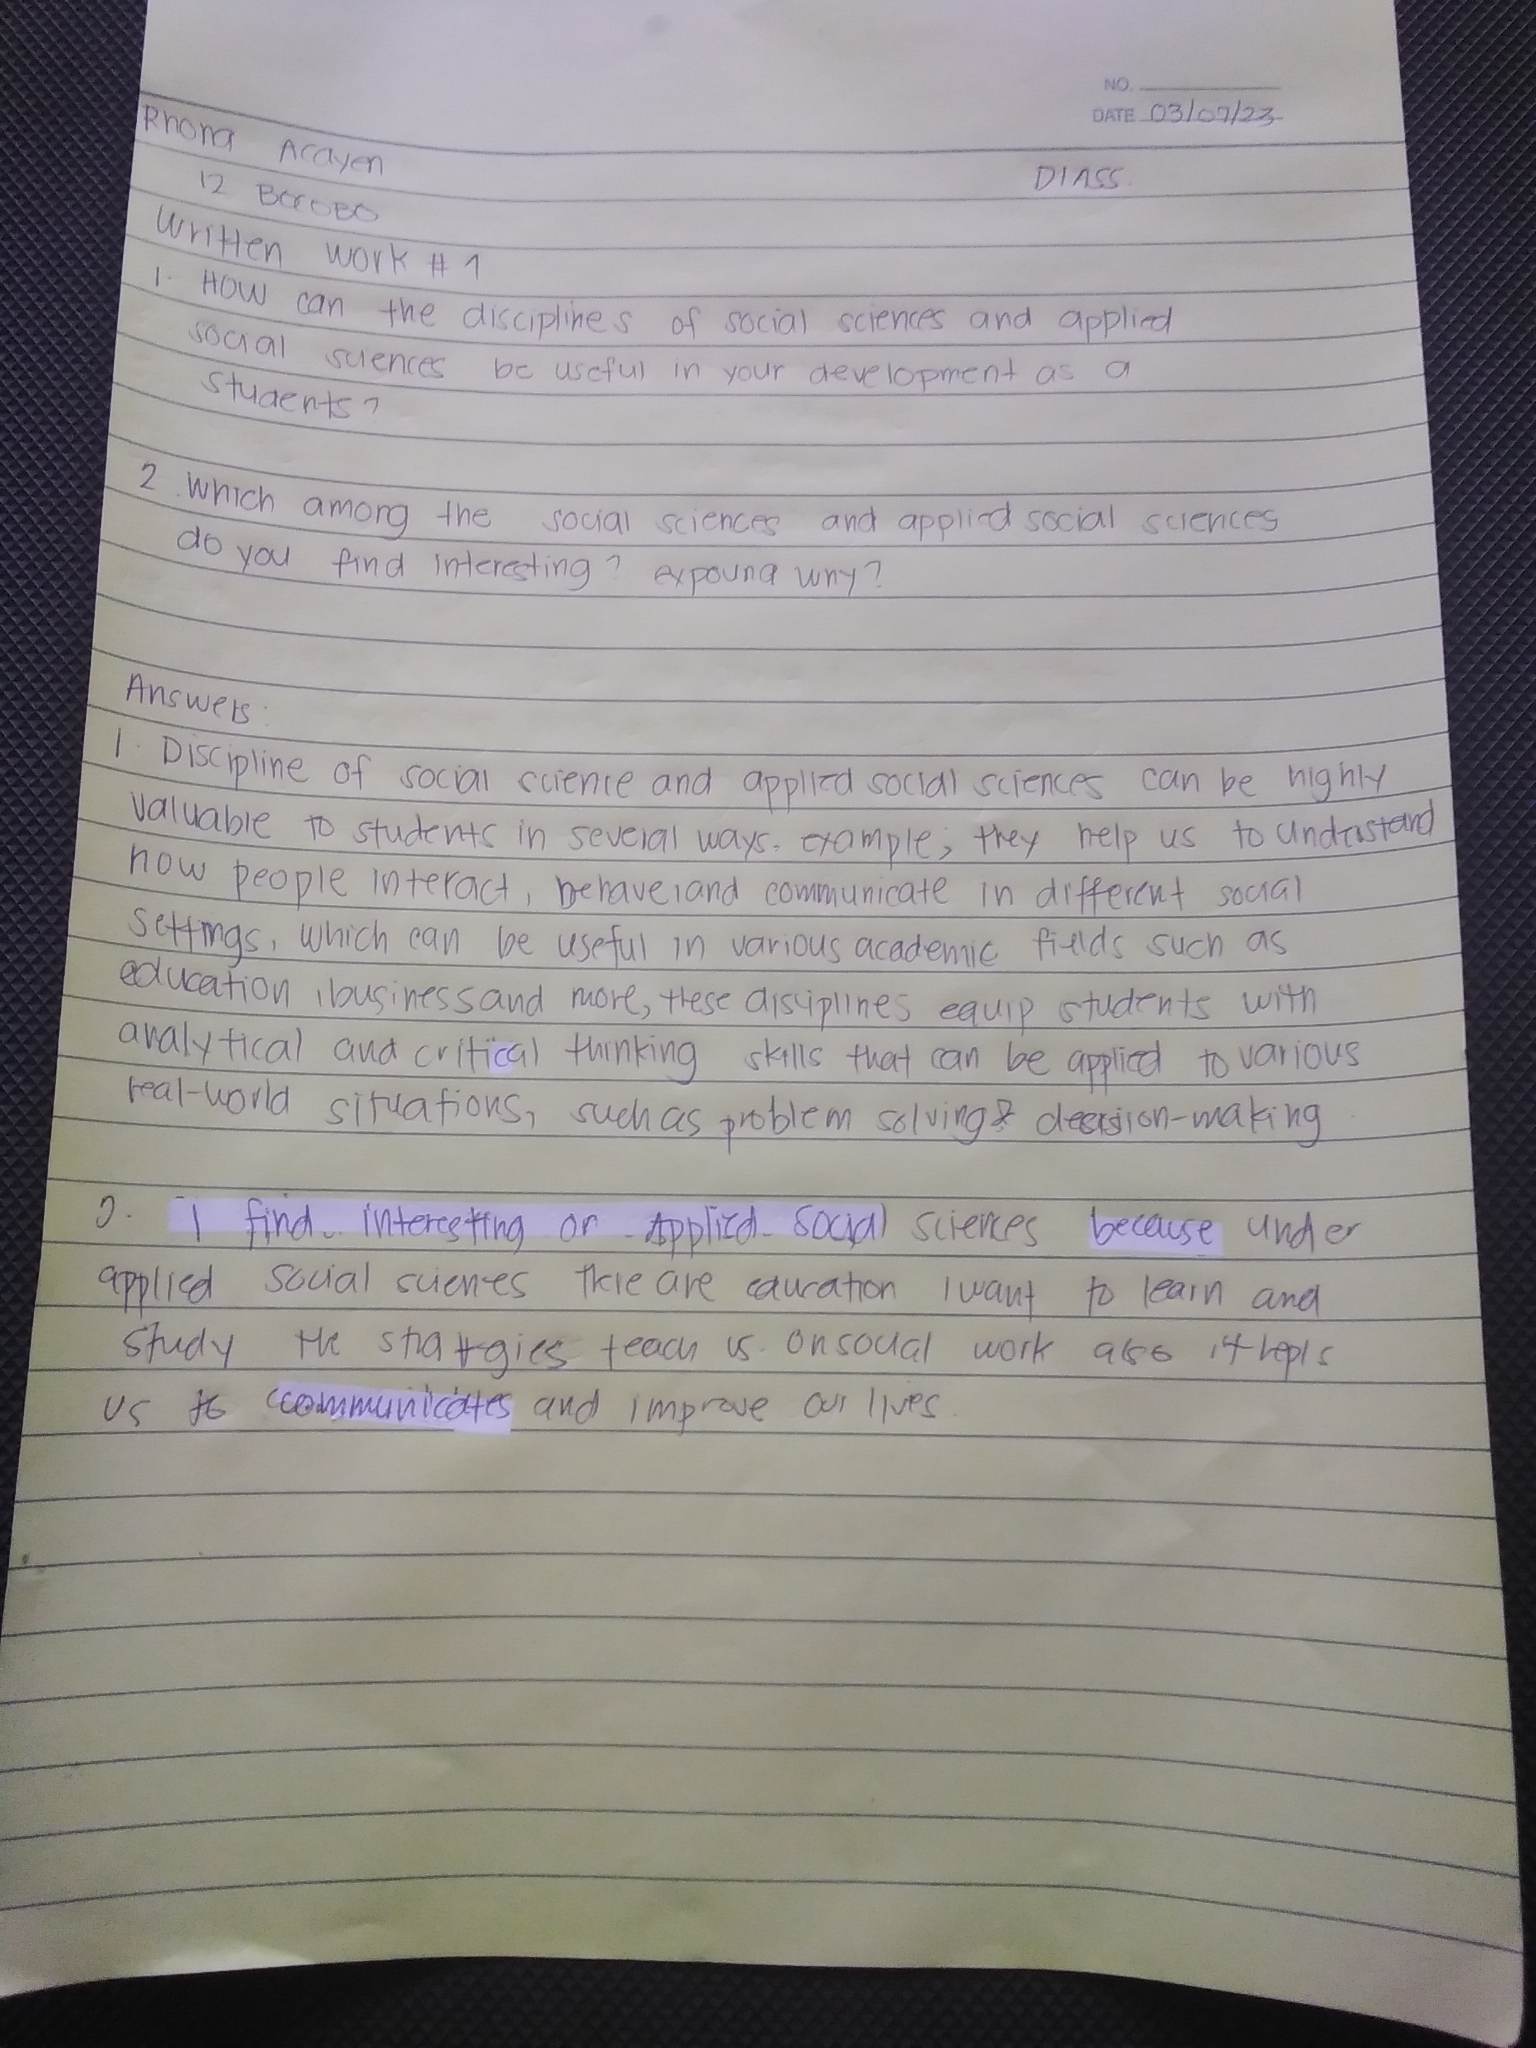 NO.
DATE 03/07/23
Rhona Acayen
DIASS.
12 Borobo
Written work # 1
1. How can the disciplines of social sciences and applied
social sciences be useful in your development as a
students?
2. Which among the social sciences and applied social sciences
do you find interesting? expound why?
Answers:
1. Discipline of social science and applied social sciences can be highly
valuable to students in several ways. example; they help us to understand
how people interact, behave, and communicate in different social
settings, which can be useful in various academic fields such as
education, business and more, these disciplines equip students with
analytical and critical thinking skills that can be applied to various
real-world situations, such as problem solving & decision-making
2. I find interesting on Applied social sciences because under
applied social sciences there are education I want to learn and
study the strategies teach us on social work also it hepls
us to communicates and improve our lives.